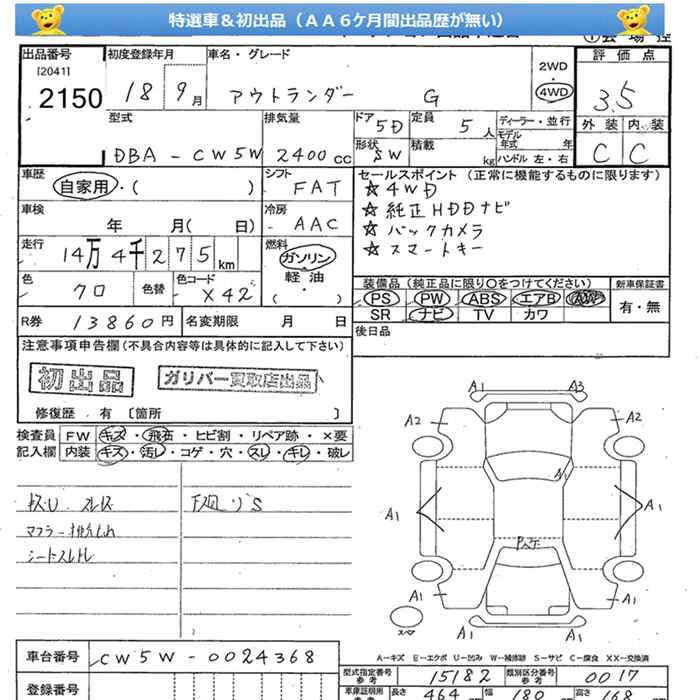 特選車＆初出品（ＡＡ６ケ月間出品歴が無い）
出品番号
[2041]
2150
初度登録年月
18 9月
車名・グレード
アウトランダー G
2WD
4WD
評価点
3.5
外装 内装
C C
型式
DBA-CW5W
排気量
2400cc
ドア 5D
定員 5人
形状 SW
積載 kg
ディーラー・並行
モデル年式 年
ハンドル 左・右
車歴
自家用・( )
シフト
FAT
車検
年 月( 日)
冷房
AAC
走行
14万4千275km
燃料
ガソリン
軽油
( ・ )
色
クロ
色替
色コード
X42
セールスポイント（正常に機能するものに限ります）
☆4WD
☆純正HDDナビ
☆バックカメラ
☆スマートキー
装備品（純正品に限り○をつけてください）
新車保証書
PS PW ABS エアB AW
SR ナビ TV カワ
有・無
R券 13860円
名変期限 月 日
後日品
注意事項申告欄（不具合内容等は具体的に記入して下さい）
初出品
ガリバー買取店出品
修復歴 有 〔箇所 〕
検査員記入欄
FW キズ・飛石・ヒビ割・リペア跡・×要
内装 キズ・汚レ・コゲ・穴・スレ・キレ・破レ
マフラー
シートスレ
下廻りS
A1 A3
A2 A2
A1
A1 A1
A1 A1
A1
スペア
A-キズ E-エクボ U-凹み W-補修跡 S-サビ C-腐食 XX-交換済
車台番号
CW5W-0024368
登録番号
型式指定番号 参考
15182
類別区分番号 参考
0017
車庫証明用 参考
長さ 464
幅 180
高さ 168